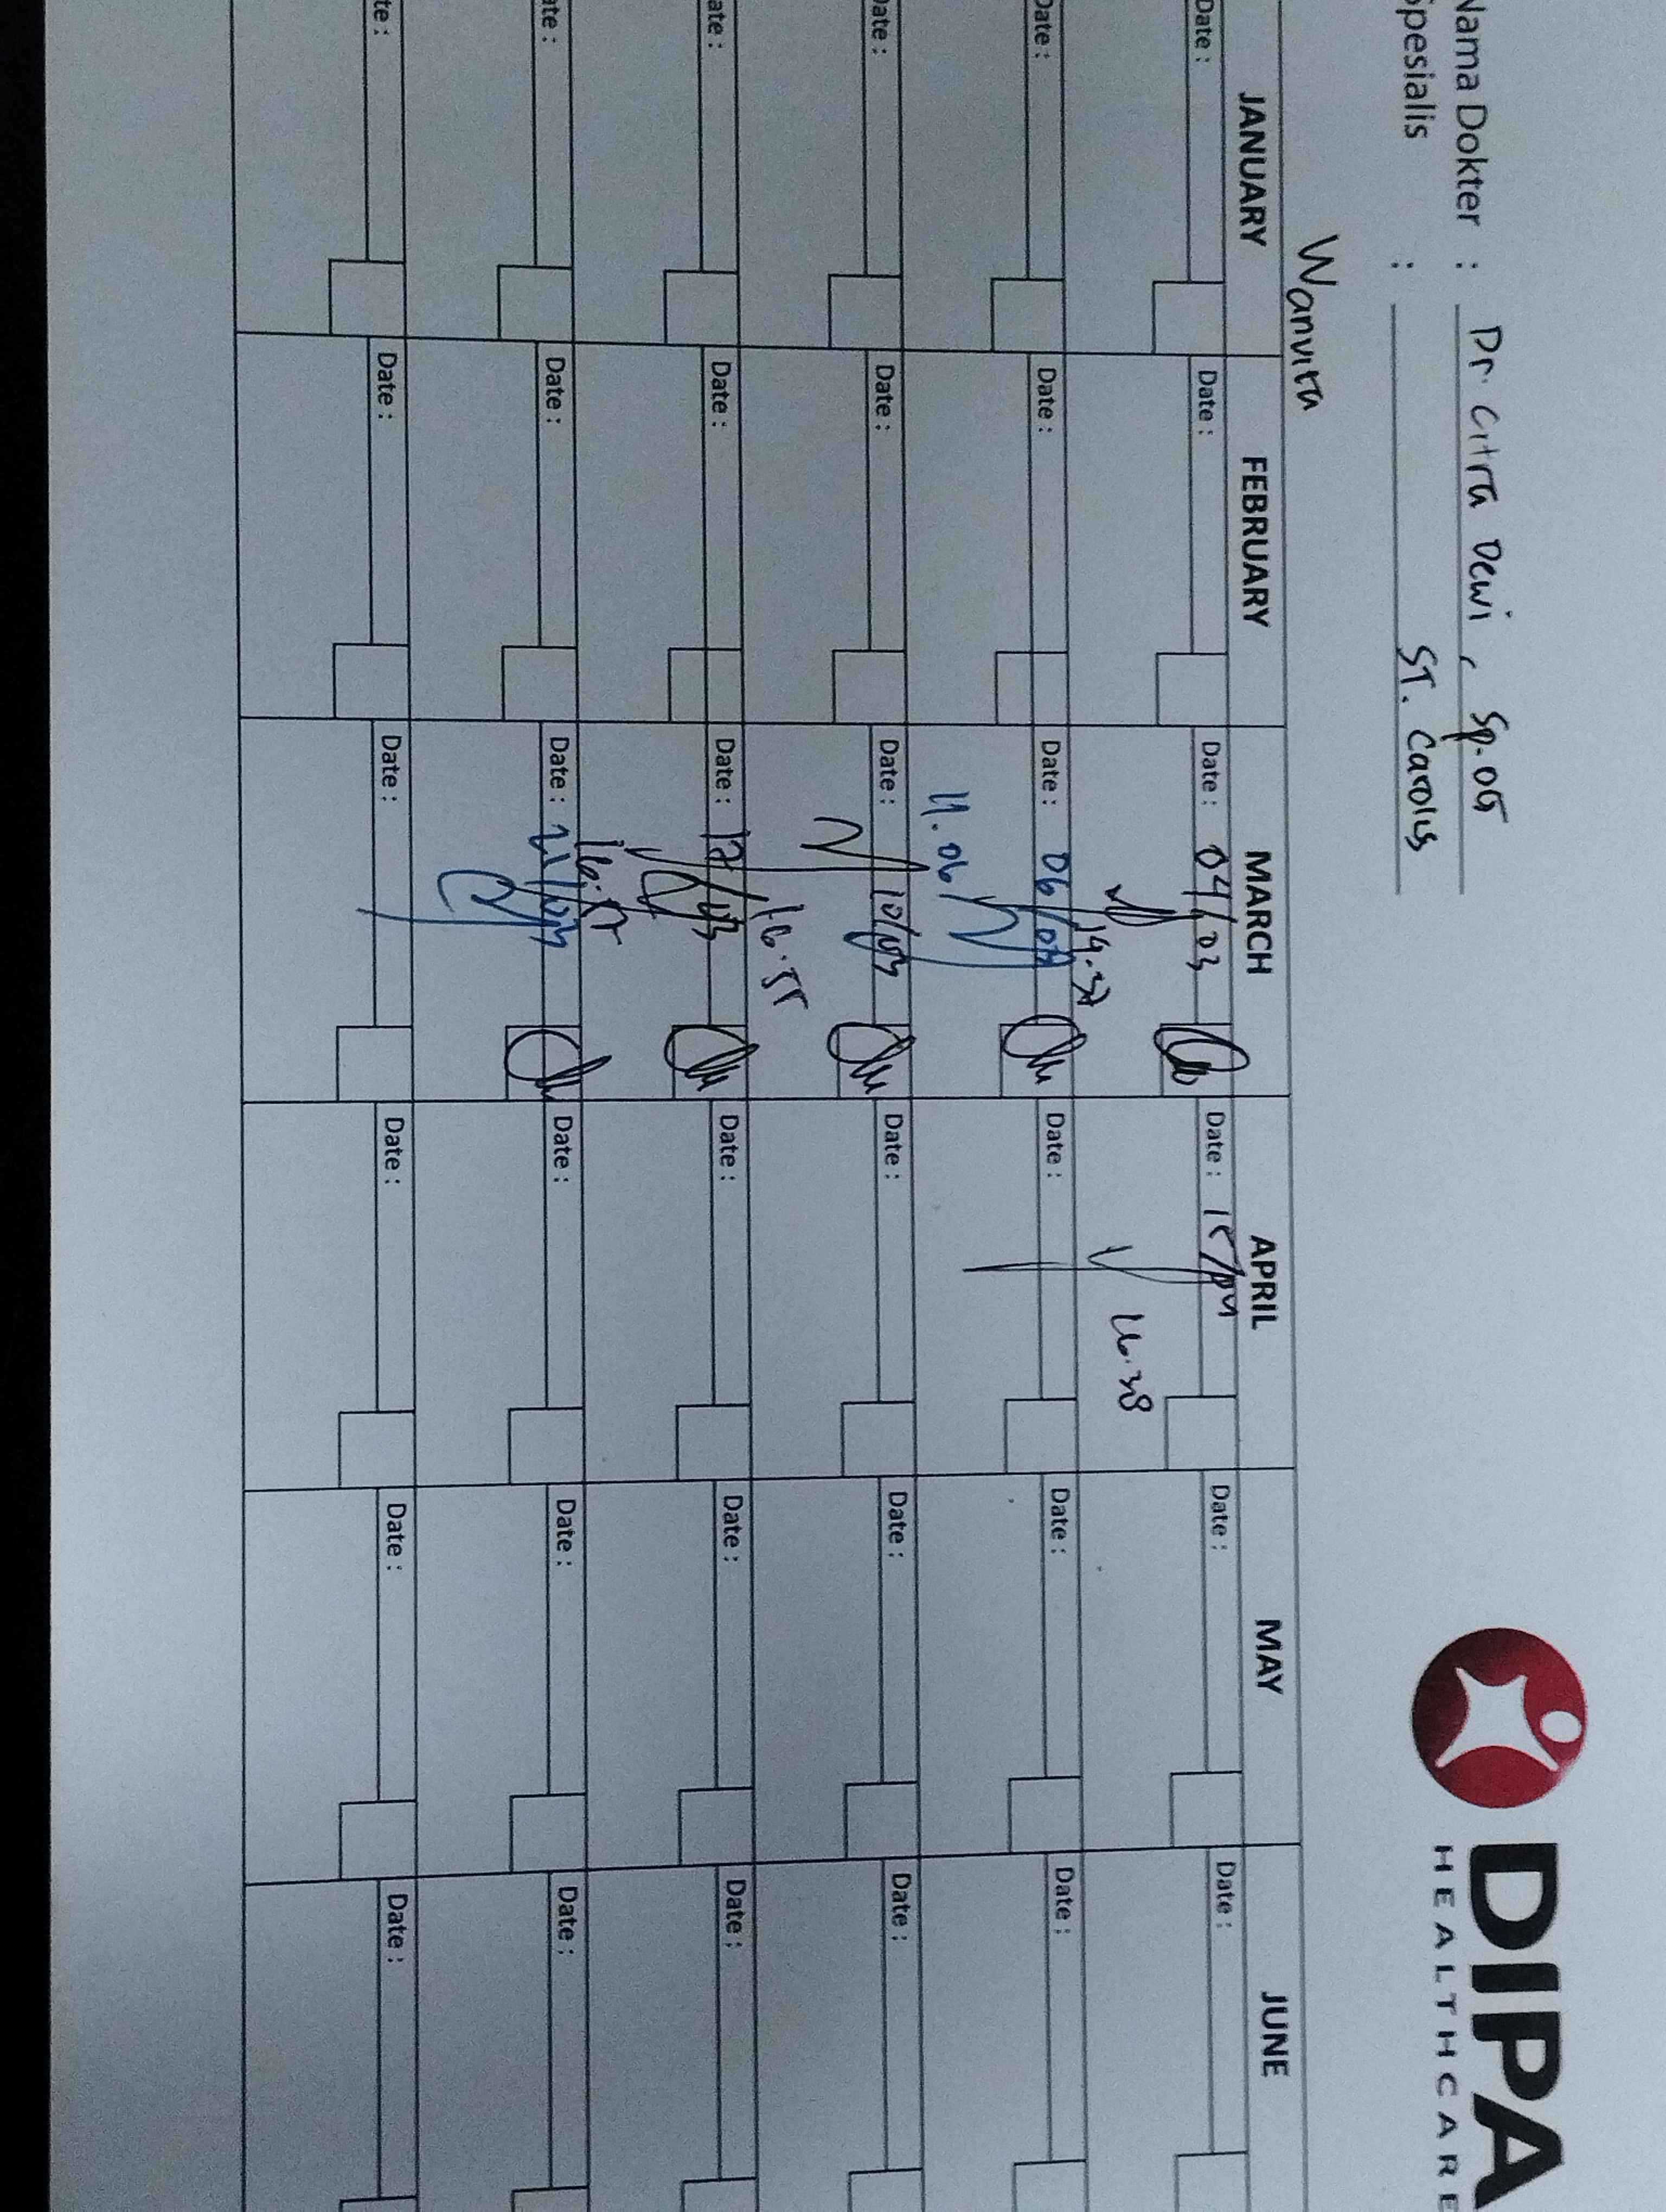 Nama Dokter : Dr. Citra Dewi, Sp.OG
Spesialis : ST. Carolus
DIPA
HEALTHCARE
Wanvita
JANUARY FEBRUARY MARCH APRIL MAY JUNE
Date : Date : Date : 04/03 Date : 15/04 Date : Date :
16.38
14.37
Date : Date : Date : 06/03 Date : Date : Date :
11.06
Date : Date : Date : 10/03 Date : Date : Date :
16.55
Date : Date : Date : 12/03 Date : Date : Date :
16.55
Date : Date : Date : 21/03 Date : Date : Date :
Date : Date : Date : Date : Date : Date :